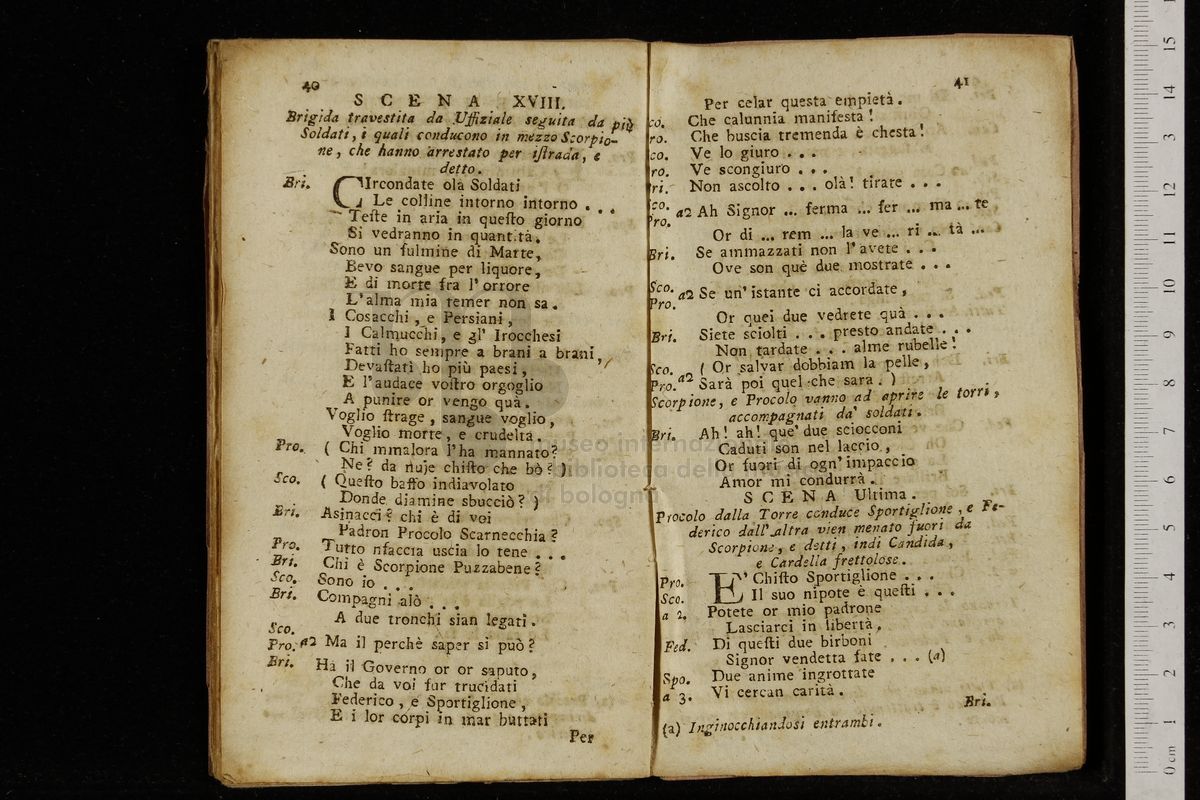 40
SCENA XVIII.
Brigida travestita da Uffiziale seguita da più
Soldati, i quali conducono in mezzo Scorpio-
ne, che hanno arrestato per istrada, e
detto.
Bri. CIrcondate olà Soldati
Le colline intorno intorno . . .
Teste in aria in questo giorno
Si vedranno in quantità.
Sono un fulmine di Marte,
Bevo sangue per liquore,
E di morte fra l'orrore
L'alma mia temer non sa.
I Cosacchi, e Persiani,
I Calmucchi, e gl' Irocchesi
Fatti ho sempre a brani a brani,
Devastati ho più paesi,
E l'audace vostro orgoglio
A punire or vengo quà.
Voglio strage, sangue voglio,
Voglio morte, e crudeltà.
Pro. ( Chi mmalora l'ha mannato?
Ne? da nuje chisto che bò? )
Sco. ( Questo baffo indiavolato
Donde diamine sbucciò? )
Bri. Asinacci? chi è di voi
Padron Procolo Scarnecchia?
Pro. Tutto nfaccia uscia lo tene . . .
Bri. Chi è Scorpione Puzzabene?
Sco. Sono io . . .
Bri. Compagni alò . . .
A due tronchi sian legati.
Sco.
Pro. a2 Ma il perchè saper si può?
Bri. Ha il Governo or or saputo,
Che da voi fur trucidati
Federico, e Sportiglione,
E i lor corpi in mar buttati
Per
41
Per celar questa empietà.
co. Che calunnia manifesta!
ro. Che buscia tremenda è chesta!
co. Ve lo giuro . . .
ro. Ve scongiuro . . .
ri. Non ascolto . . . olà! tirate . . .
co.
Pro. a2 Ah Signor ... ferma ... fer ... ma ... te
Or di ... rem ... la ve ... ri ... tà ...
Bri. Se ammazzati non l'avete . . .
Ove son què due mostrate . . .
Sco.
Pro. a2 Se un' istante ci accordate,
Or quei due vedrete quà . . .
Bri. Siete sciolti . . . presto andate . . .
Non tardate . . . alme rubelle!
Sco. ( Or salvar dobbiam la pelle,
Pro. a2 Sarà poi quel che sarà. )
Scorpione, e Procolo vanno ad aprire le torri,
accompagnati da' soldati.
Bri. Ah! ah! que' due sciocconi
Caduti son nel laccio,
Or fuori di ogn' impaccio
Amor mi condurrà.
SCENA Ultima.
Procolo dalla Torre conduce Sportiglione, e Fe-
derico dall' altra vien menato fuori da
Scorpione, e detti, indi Candida,
e Cardella frettolose.
Pro. E' Chisto Sportiglione . . .
Sco. Il suo nipote è questi . . .
a 2. Potete or mio padrone
Lasciarci in libertà.
Fed. Di questi due birboni
Signor vendetta fate . . . (a)
Spo. Due anime ingrottate
a 3. Vi cercan carità.
Bri.
(a) Inginocchiandosi entrambi.
museo internazionale
biblioteca della musica
di bologna